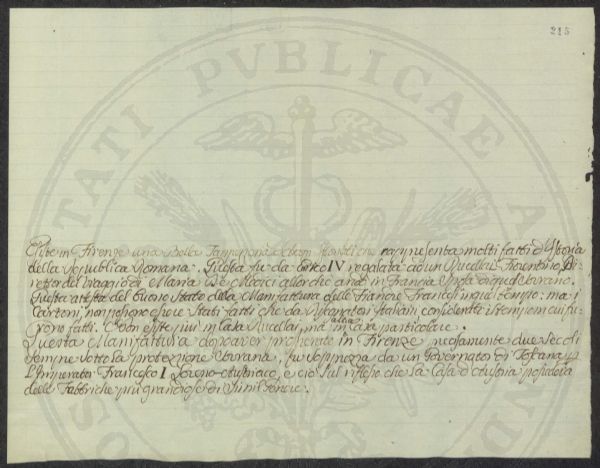 215
STATI PVBLICAE
Esiste in Firenze una Bella che rappresenta molti fatti d'Istoria
della Republica Romana. Questa fu da Enrico IV regalata ad un Rucellai Fiorentino, Di
rettor del viaggio di Maria De Medici allorchè andò in Francia Sposa di quel Sovrano.
Questa attesta del buono Stato della Manifattura delle Fiandre Francesi in quel tempo: ma i
Cartoni non possono essere Stati fatti che da Disegnatori Italiani considerate i tempi in cui fu
rono fatti. Essa non esiste più in Casa Rucellai, ma in altra Casa particolare.
Questa Manifattura dopo aver in Firenze due Secoli
Sempre Sotto la protezione Sovrana, fu Soppressa da un Governator di Toscana p
L'Imperator Francesco I Loreno-Austriaco, e ciò Sul riflesso che la Casa d'Austria possedeva
delle Fabbriche più grandiose di Simil Genere.